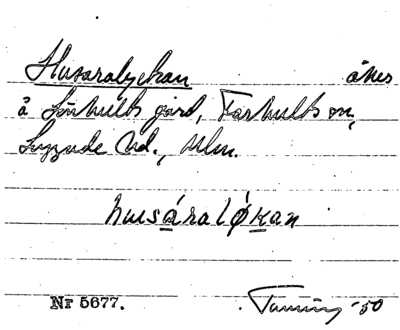 Husaralyckan åker
å Lönhults gård, Farhults sn,
Luggude hd., Mlm.
husáralǿkan
Nr 5677.
-50